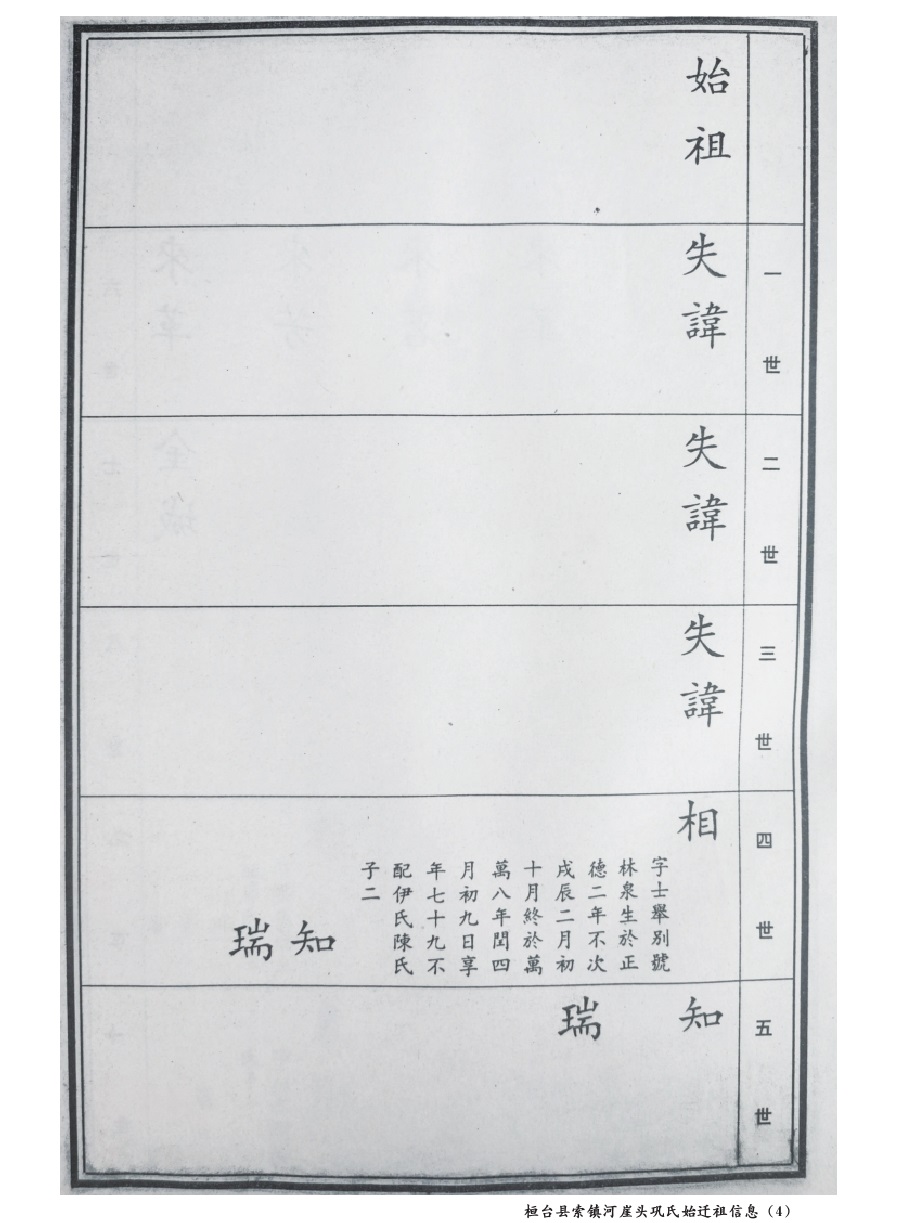 始祖
一世
失諱
二世
失諱
三世
失諱
四世
相
字士舉別號
林泉生於正
德二年不次
戌辰二月初
十月終於萬
萬八年閏四
月初九日享
年七十九不
配伊氏陳氏
子二
知
瑞
五世
知
瑞
桓台县索镇河崖头巩氏始迁祖信息（4）